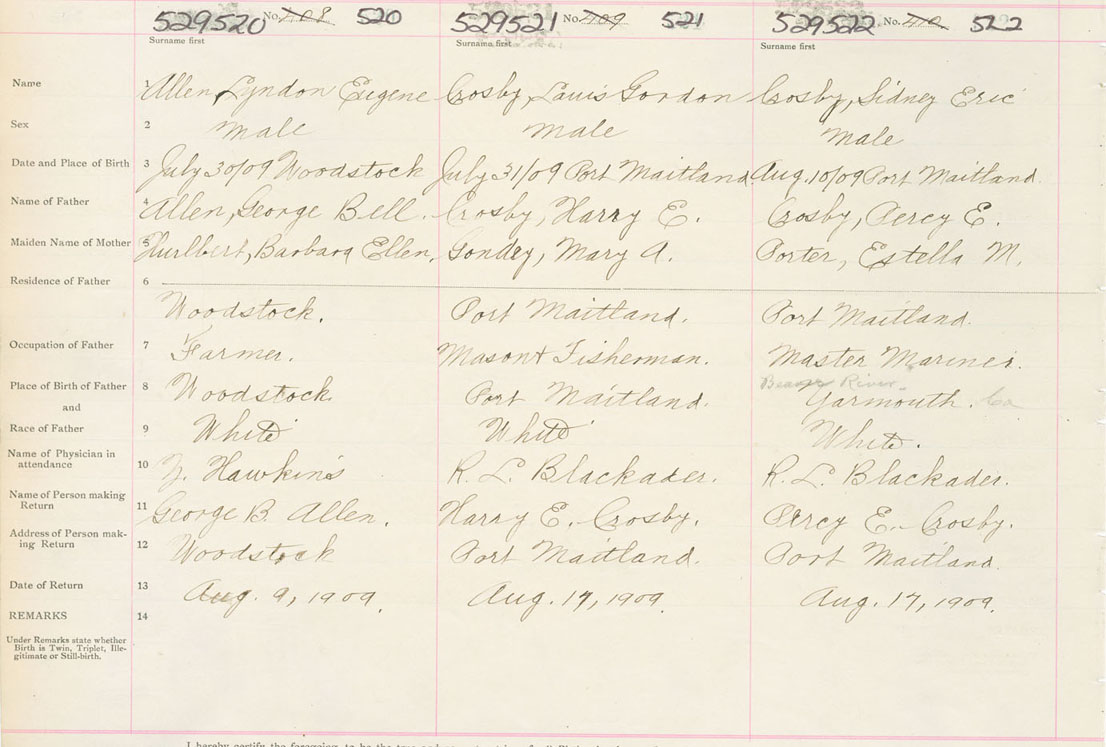 529520 No. 408 520 529521 No. 409 521 529522 No. 410 522
Surname first Surname first Surname first
Name 1 Allen, Lyndon Eugene Crosby, Louis Gordon Crosby, Sidney Eric
Sex 2 Male Male Male
Date and Place of Birth 3 July 30/09 Woodstock July 31/09 Port Maitland. Aug. 10/09 Port Maitland.
Name of Father 4 Allen, George Bell. Crosby, Harry E. Crosby, Percy E.
Maiden Name of Mother 5 Hurlbert, Barbara Ellen. Mary A. Porter, Estella M.
Residence of Father 6
Woodstock. Port Maitland. Port Maitland.
Occupation of Father 7 Farmer. Mason & Fisherman. Master Mariner.
Place of Birth of Father 8 Woodstock. Port Maitland. Beaver River. Yarmouth. Co
and
Race of Father 9 White White White.
Name of Physician in
attendance 10 Hawkins R. L. Blackader. R. L. Blackader.
Name of Person making
Return 11 George B. Allen. Harry E. Crosby. Percy E. Crosby.
Address of Person mak-
ing Return 12 Woodstock Port Maitland. Port Maitland.
Date of Return 13 Aug. 9, 1909. Aug. 17, 1909. Aug. 17, 1909.
REMARKS 14
Under Remarks state whether
Birth is Twin, Triplet, Ille-
gitimate or Still-birth.